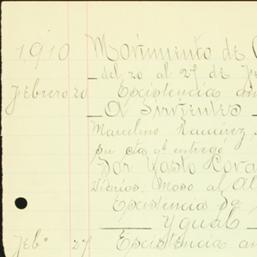 1910 Movimiento de
del 20 al 27 de
Febrero 20 Existencia an
A Sirvientes
Marcelino Ramirez
pr cta qe entregó
Por Gasto
Diarios. Mozo al
Existencia de
Ygual
Feb° 27 Existencia an